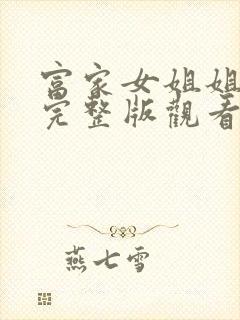 富家女姐姐
完整版觀看
燕七雪